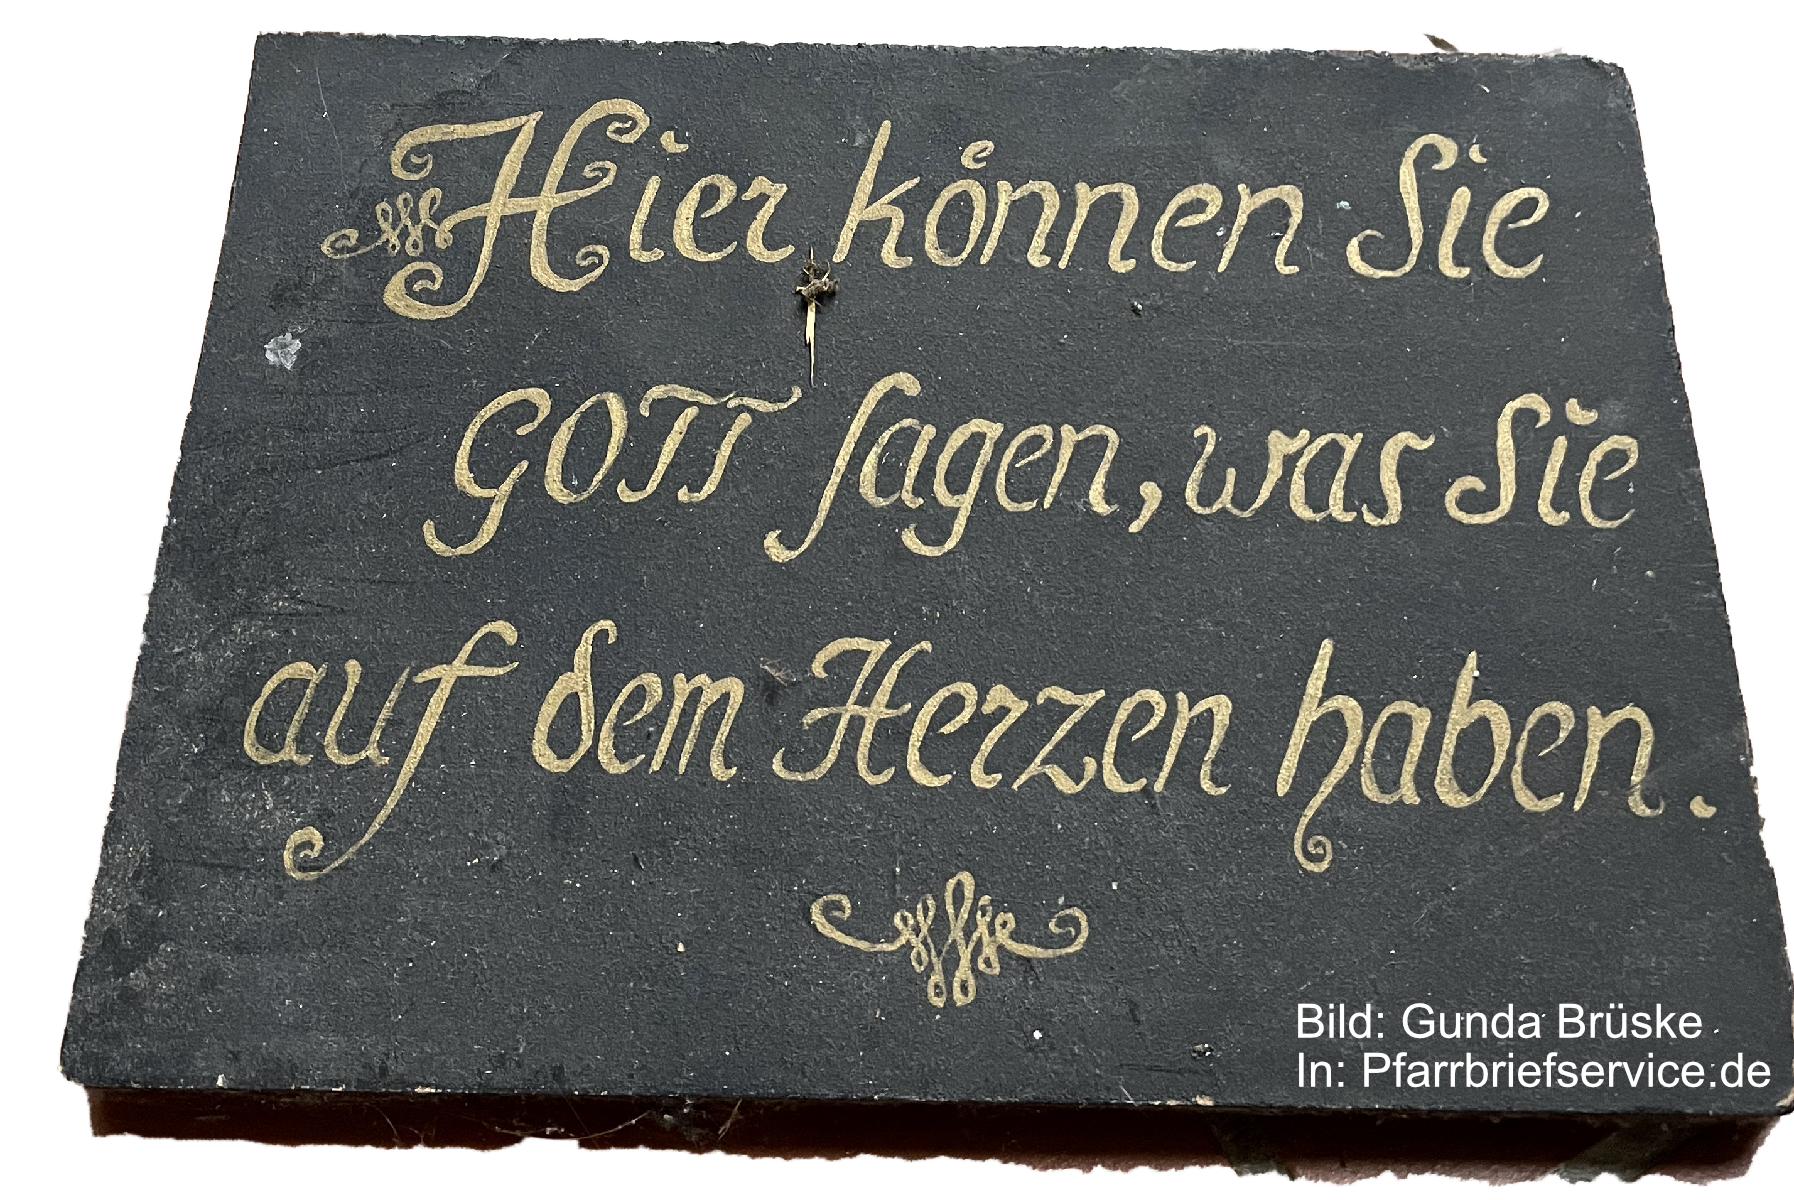 Hier können Sie
GOTT sagen, was Sie
auf dem Herzen haben.
Bild: Gunda Brüske
In: Pfarrbriefservice.de